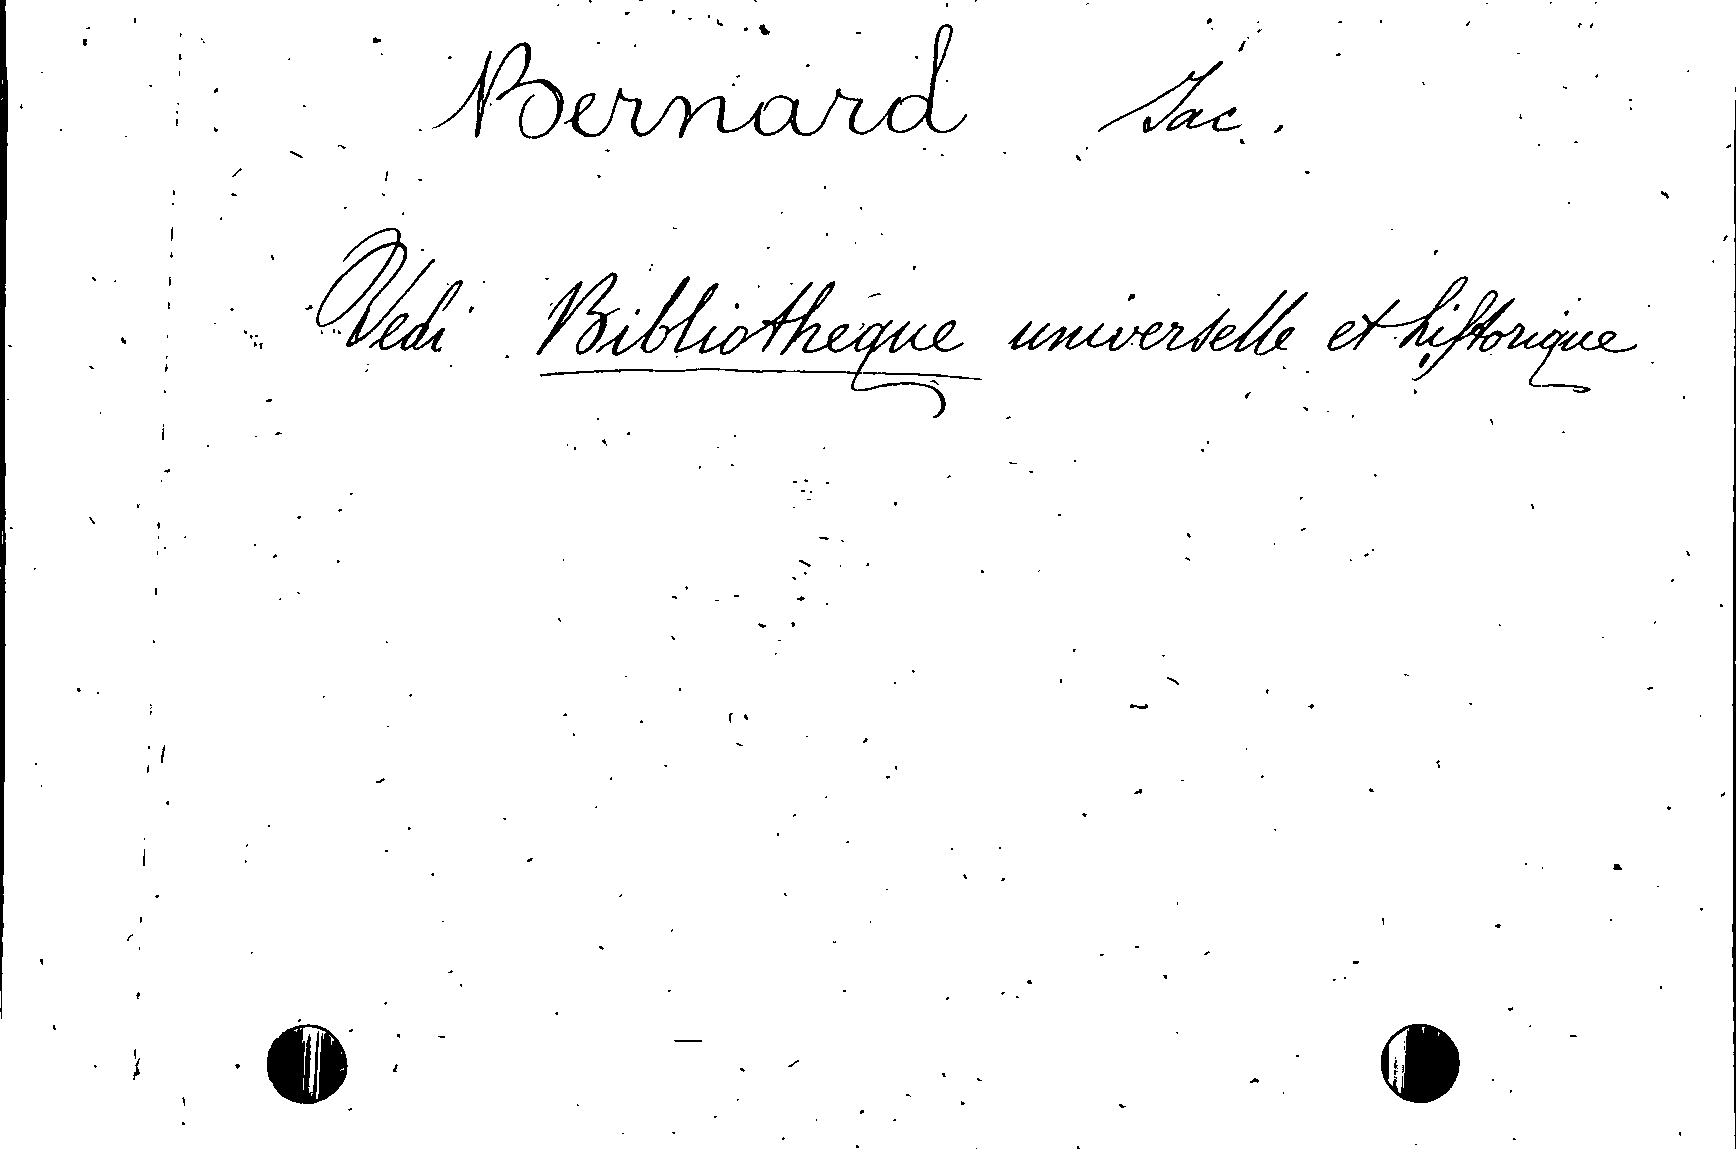 Bernard Jac.
Vedi Bibliothèque universelle et historique